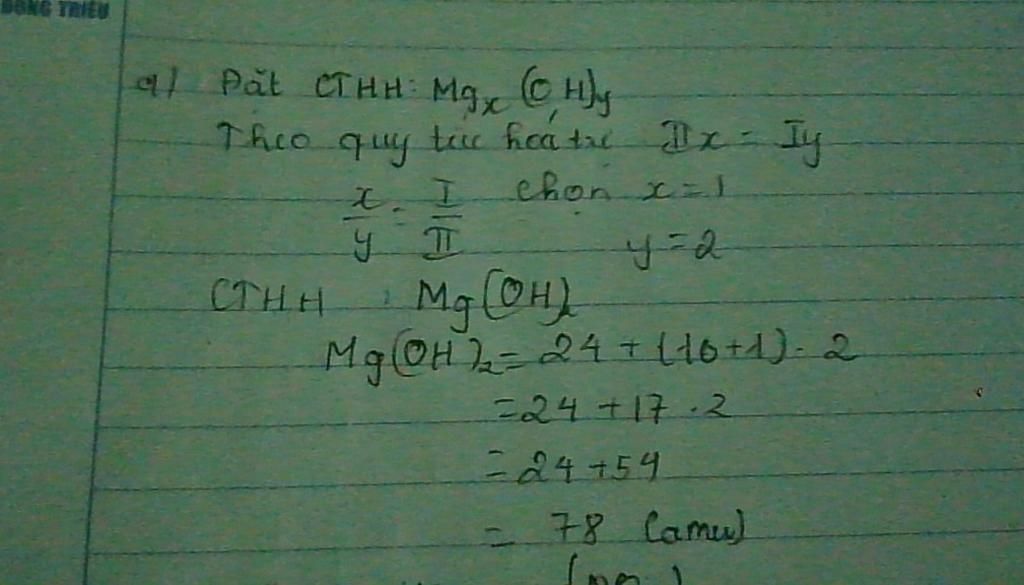 ĐÔNG TRIỀU
a/ Đặt CTHH: Mgx (OH)y
Theo quy tắc hoá trị IIx = Iy
x/y = I/II chọn x=1
y=2
CTHH : Mg(OH)2
Mg(OH)2 = 24 + (16+1) . 2
= 24 + 17 . 2
= 24 + 54
= 78 (amu)